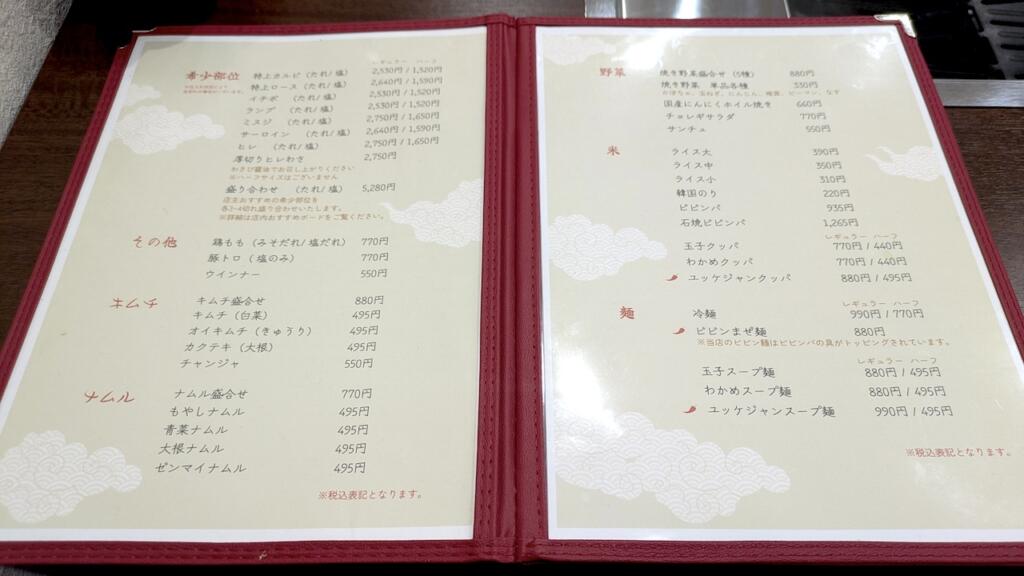 希少部位
レギュラー ハーフ
特上カルビ（たれ/塩） 2,530円 / 1,520円
特上ロース（たれ/塩） 2,640円 / 1,590円
イチボ （たれ/塩） 2,530円 / 1,520円
ランプ （たれ/塩） 2,530円 / 1,520円
ミスジ （たれ/塩） 2,750円 / 1,650円
サーロイン （たれ/塩） 2,640円 / 1,590円
ヒレ （たれ/塩） 2,750円 / 1,650円
厚切りヒレわさ 2,750円
わさび醤油でお召し上がりください
※ハーフサイズはございません
盛り合わせ （たれ/塩） 5,280円
店主おすすめの希少部位を
各3~4切れ盛り合わせいたします。
※詳細は店内おすすめボードをご覧ください。
その他
鶏もも（みそだれ/塩だれ） 770円
豚トロ（塩のみ） 770円
ウインナー 550円
キムチ
キムチ盛合せ 880円
キムチ（白菜） 495円
オイキムチ（きゅうり） 495円
カクテキ（大根） 495円
チャンジャ 550円
ナムル
ナムル盛合せ 770円
もやしナムル 495円
青菜ナムル 495円
大根ナムル 495円
ゼンマイナムル 495円
※税込表記となります。
野菜
焼き野菜盛合せ（5種） 880円
焼き野菜 単品各種 330円
かぼちゃ、玉ねぎ、にんじん、椎茸、ピーマン、なす
国産にんにくホイル焼き 660円
チョレギサラダ 770円
サンチュ 550円
米
ライス大 390円
ライス中 350円
ライス小 310円
韓国のり 220円
ビビンバ 935円
石焼ビビンバ 1,265円
レギュラー ハーフ
玉子クッパ 770円 / 440円
わかめクッパ 770円 / 440円
ユッケジャンクッパ 880円 / 495円
麺
レギュラー ハーフ
冷麺 990円 / 770円
ビビンまぜ麺 880円
※当店のビビン麺はビビンバの具がトッピングされています。
レギュラー ハーフ
玉子スープ麺 880円 / 495円
わかめスープ麺 880円 / 495円
ユッケジャンスープ麺 990円 / 495円
※税込表記となります。